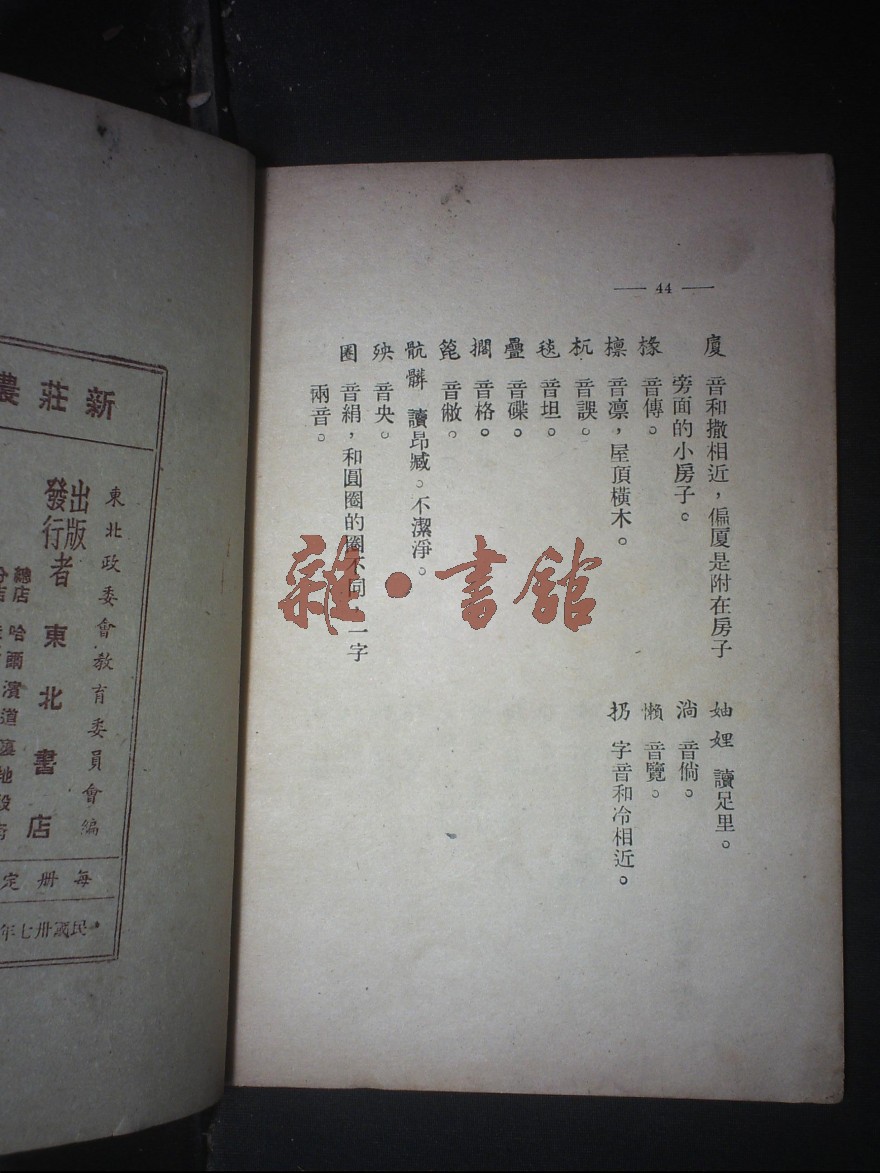 44
廈 音和撒相近，偏厦是附在房子
旁面的小房子。
椽 音傳。
檩 音凛，屋頂橫木。
杌 音誤。
毯 音坦。
疊 音碟。
擱 音格。
音敝。
骯髒 讀昂臧。不潔淨。
殃 音央。
圈 音絹，和圓圈的圈不同 一字
兩音。
妯娌 讀足里。
淌 音倘。
懒 音覽。
扔 字音和冷相近。
雜·書館
新莊農
東北政委會教育委員會編
出版
發行者 東北書店
總店 哈爾濱道裏地段街
分店
每册定
民國卅七年